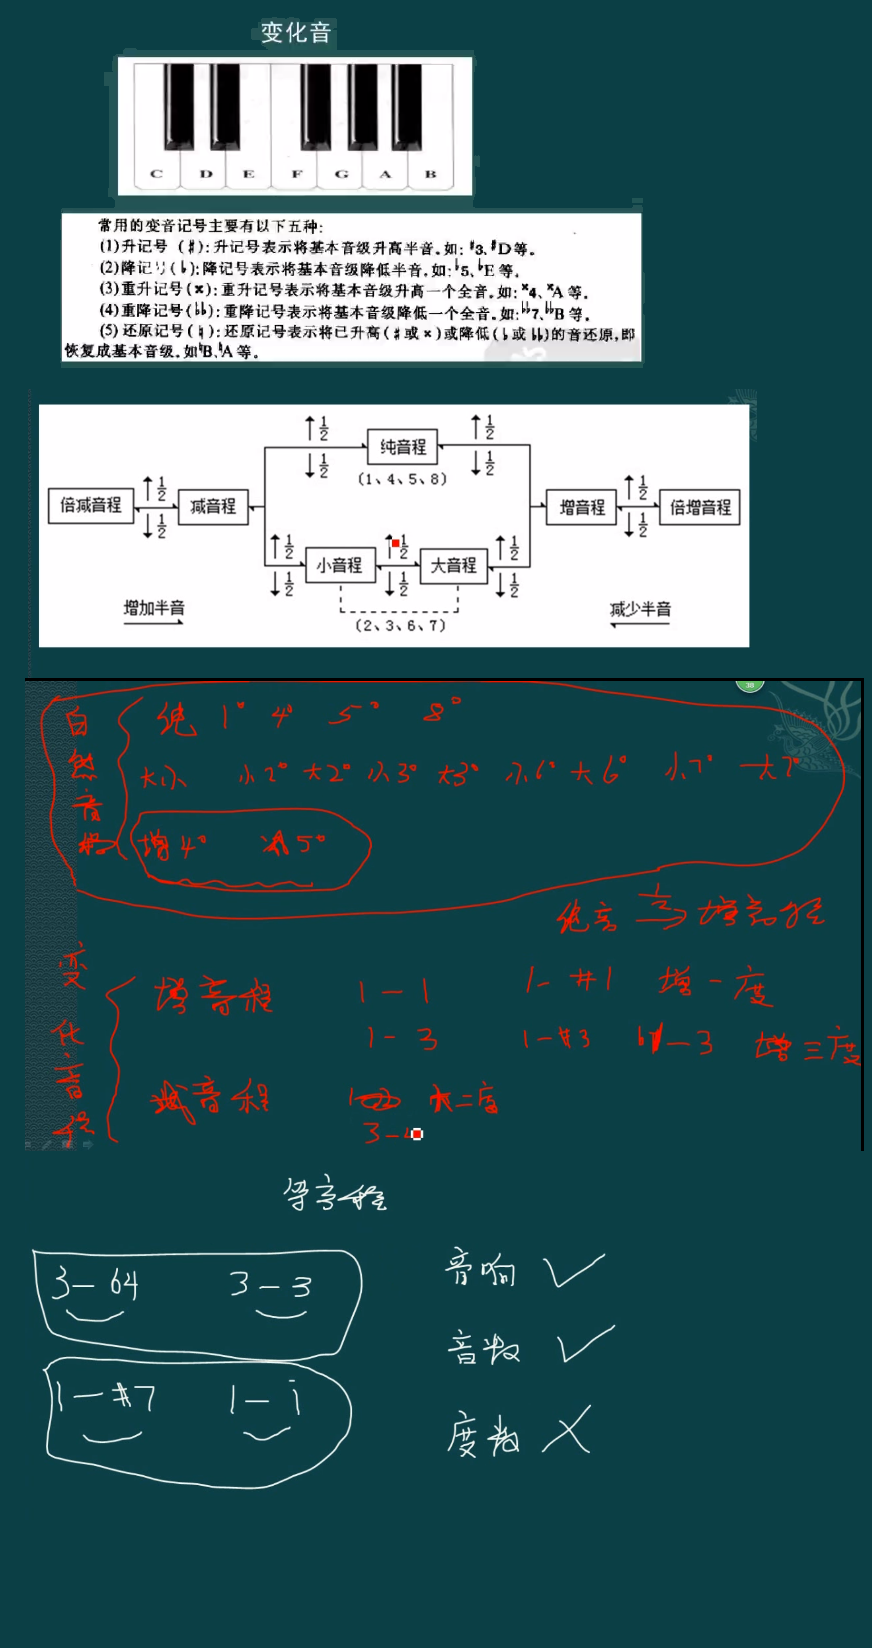 变化音
C D E F G A B
常用的变音记号主要有以下五种:
(1)升记号(♯):升记号表示将基本音级升高半音。如:♯3、♯D等。
(2)降记号(♭):降记号表示将基本音级降低半音。如:♭5、♭E等。
(3)重升记号(×):重升记号表示将基本音级升高一个全音。如:×4、×A等。
(4)重降记号(♭♭):重降记号表示将基本音级降低一个全音。如:♭♭7、♭♭B等。
(5)还原记号(♮):还原记号表示将已升高(♯或×)或降低(♭或♭♭)的音还原,即
恢复成基本音级。如♮B、♮A等。
↑1/2 纯音程 ↑1/2
↓1/2 (1、4、5、8) ↓1/2
倍减音程 ↑1/2 ↓1/2 减音程 增音程 ↑1/2 ↓1/2 倍增音程
↑1/2 ↓1/2 小音程 ↑1/2 ↓1/2 大音程 ↑1/2 ↓1/2
增加半音 (2、3、6、7) 减少半音
38
自然音程
纯 1° 4° 5° 8°
大小 小2° 大2° 小3° 大3° 小6° 大6° 小7° 大7°
增4° 减5°
纯音 增音程
变化音程
增音程 1—1 1—#1 增一度
1—3 1—#3 b1—3 增三度
减音程 大二度
3—4
等音程
3—b4 3—3 音响 ✓
音数 ✓
1—#7 1—i
度数 ✗